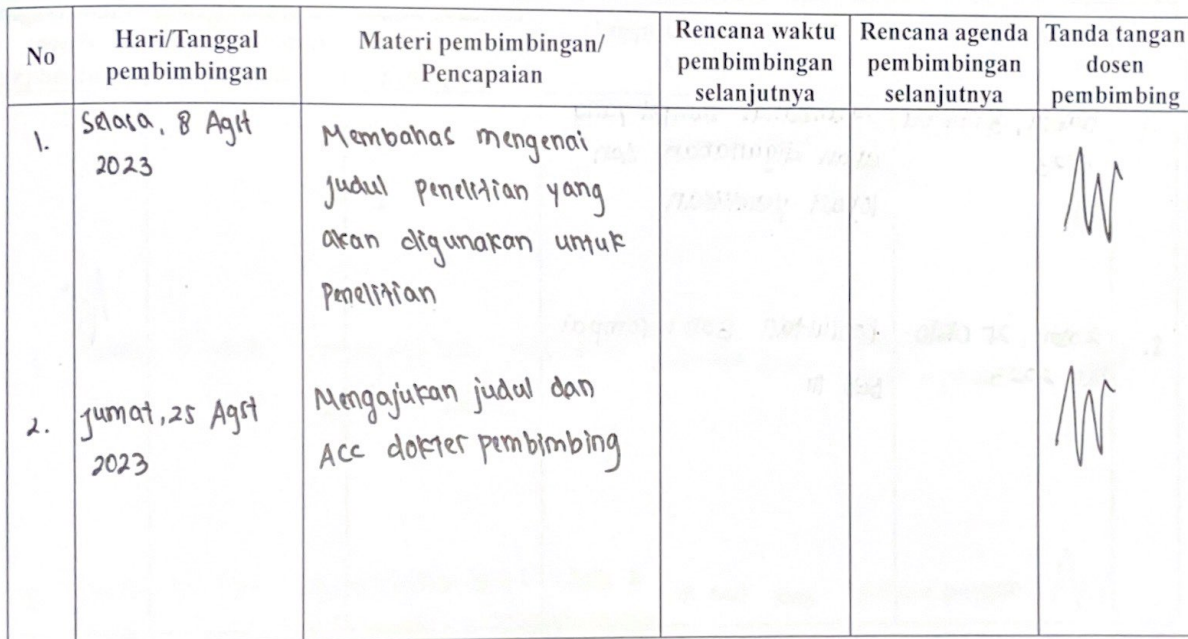 No
Hari/Tanggal
pembimbingan
Materi pembimbingan/
Pencapaian
Rencana waktu
pembimbingan
selanjutnya
Rencana agenda
pembimbingan
selanjutnya
Tanda tangan
dosen
pembimbing
1.
Selasa, 8 Agst
2023
Membahas mengenai
judul penelitian yang
akan digunakan untuk
penelitian
2.
Jumat, 25 Agst
2023
Mengajukan judul dan
Acc dokter pembimbing